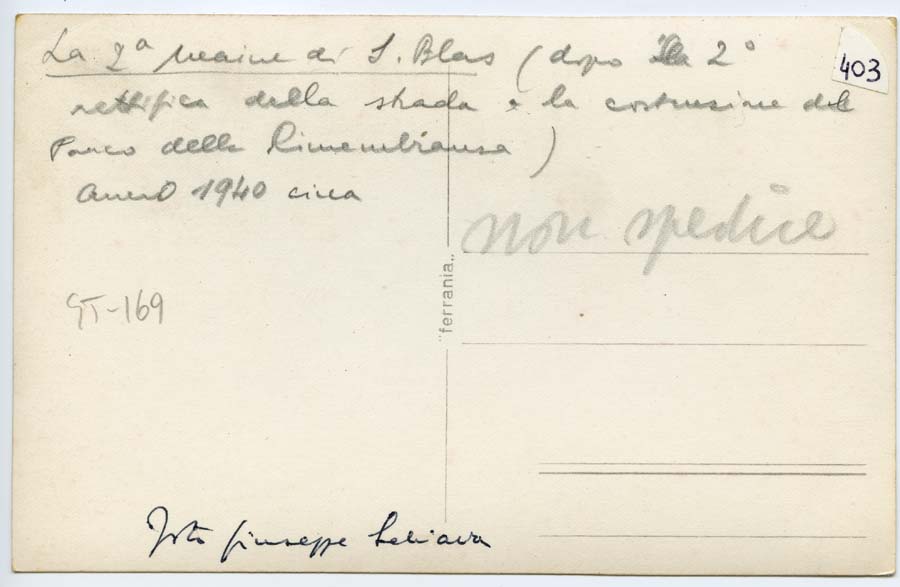 La 2ª maine di S. Blas (dopo la 2°
403
rettifica della strada e la costruzione del
Parco della Rimembranza)
anno 1940 circa
non spedire
"ferrania"
GT-169
Foto Giuseppe Schiava